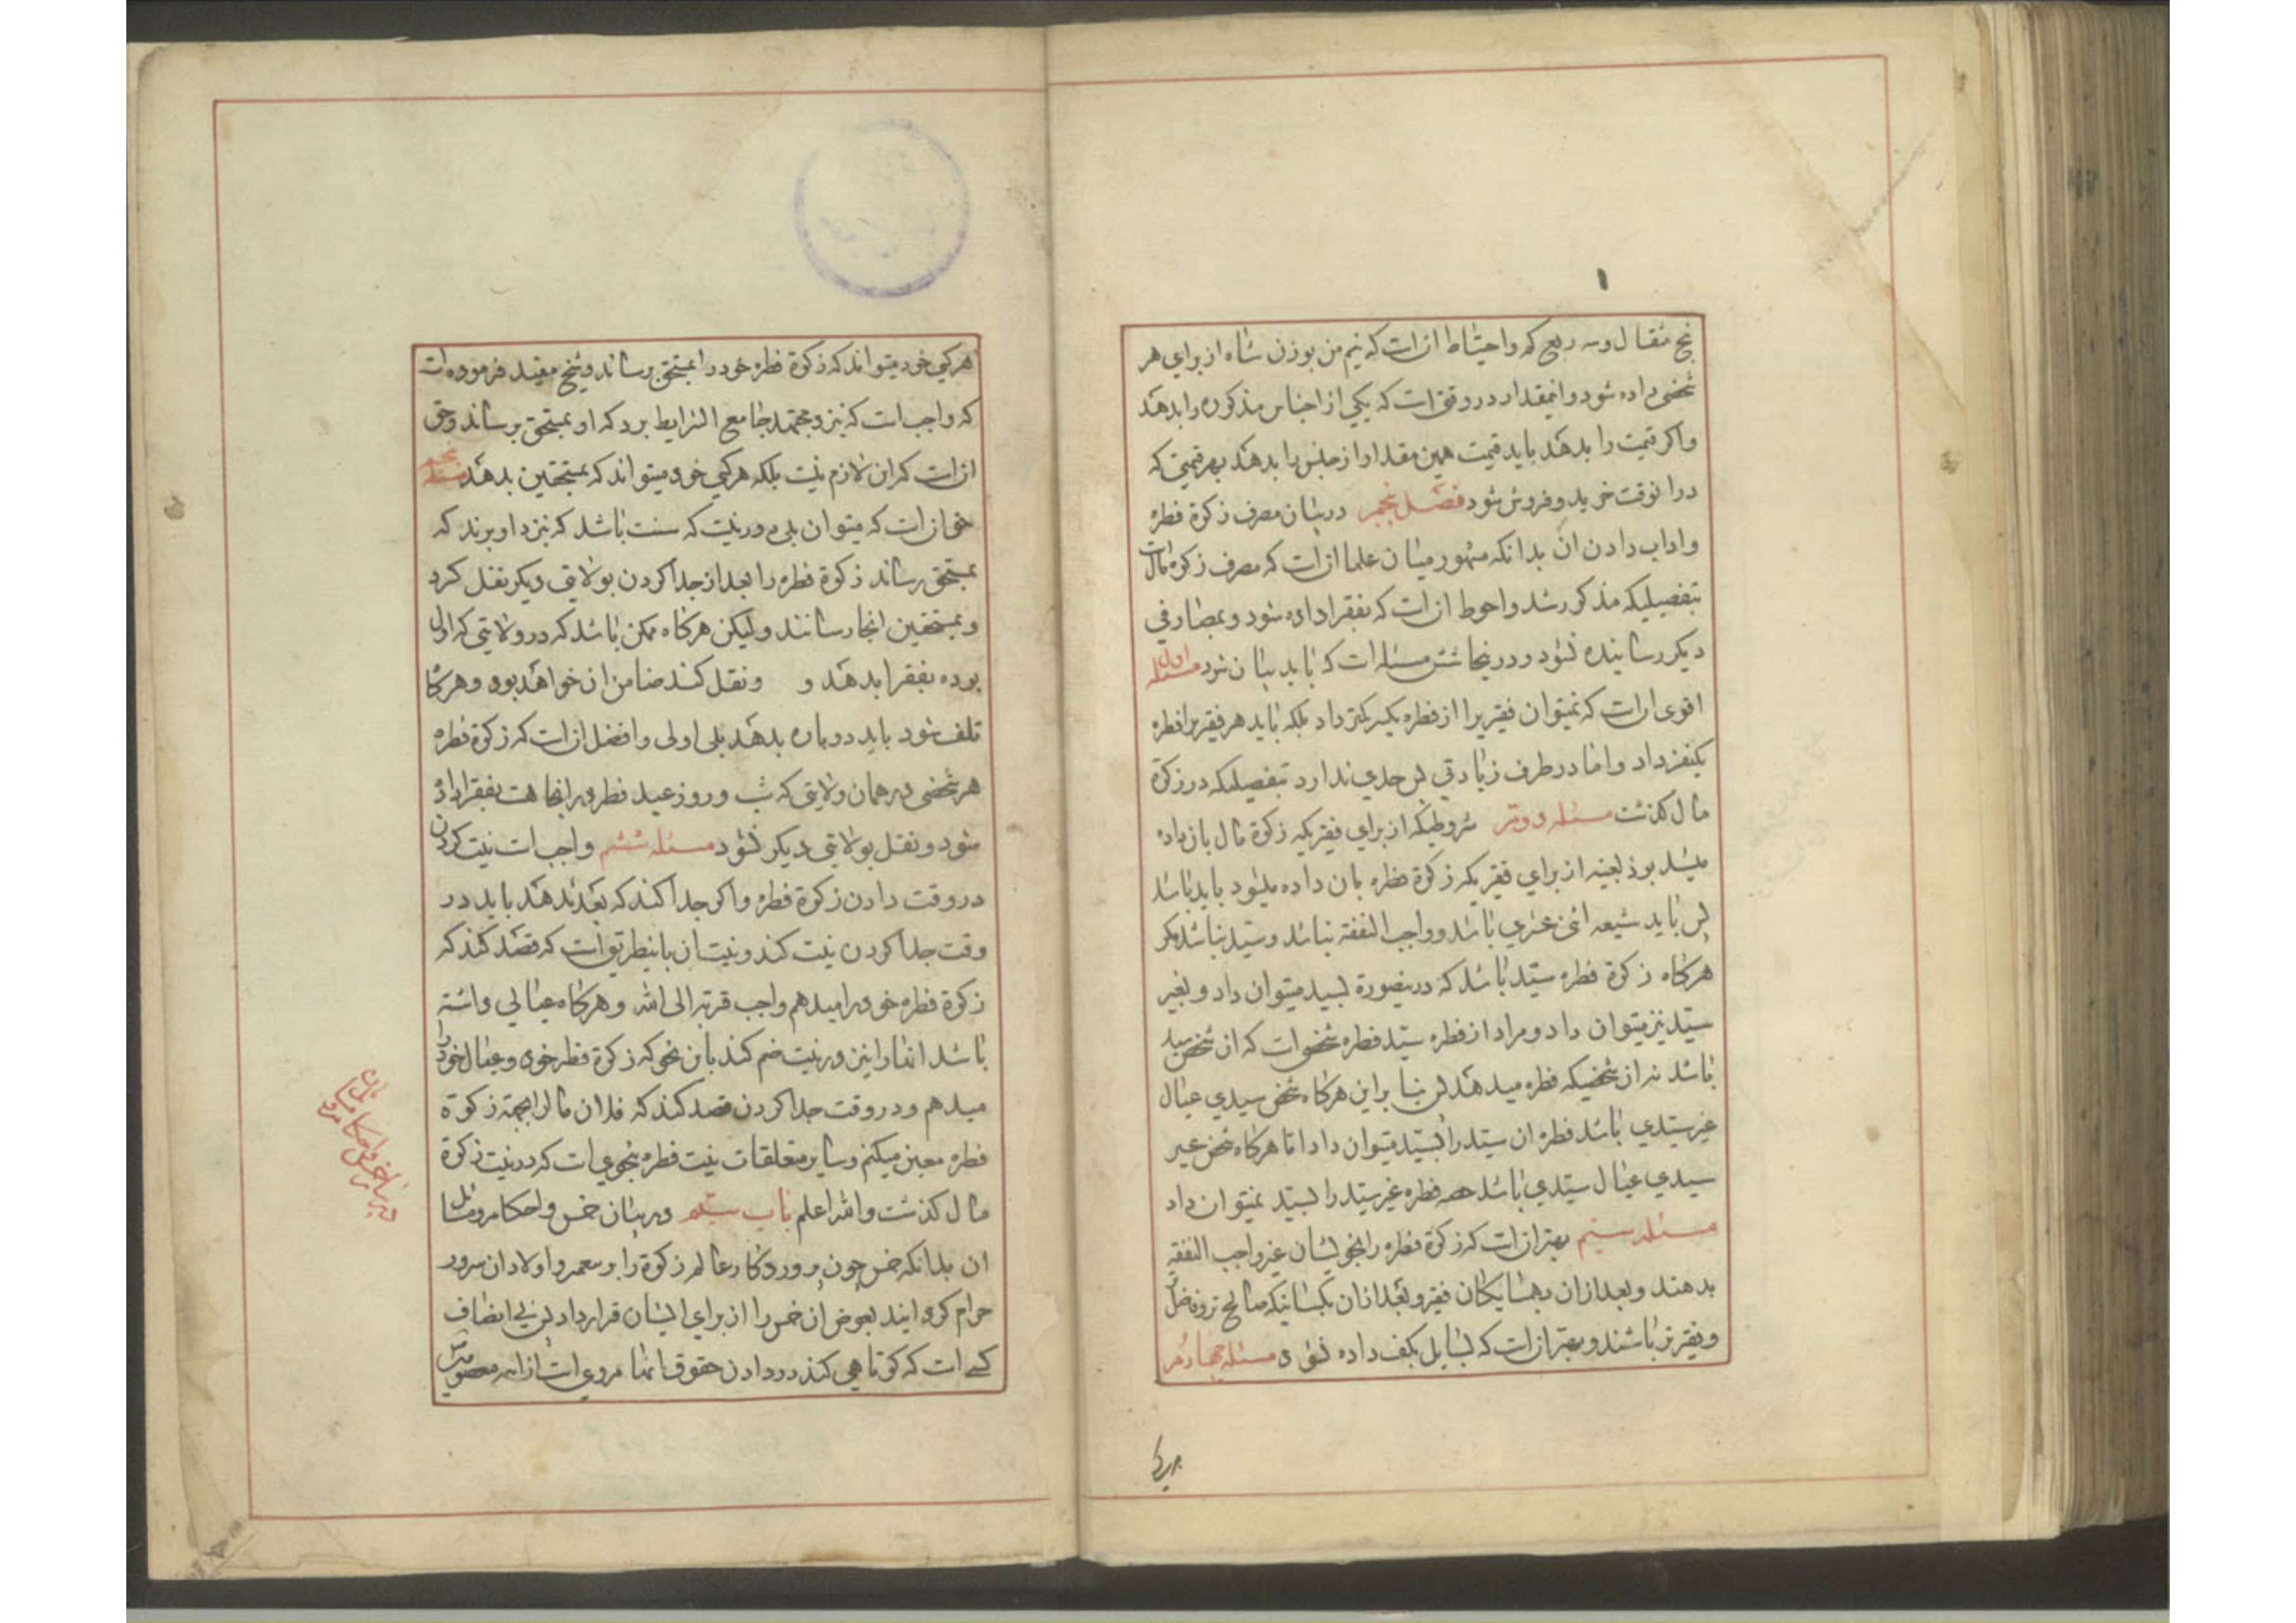 پنج مثقال و سه ربع که واحتیاط ان است که نیم من بوزن شاه از برای هر
شخصی داده شود و اینمقدار در وقتی است که یکی از اجناس مذکوره را بدهند
واکر قیمت را بدهند باید قیمت همین مقدار از جنس را بدهند بهر قیمتی که
در انوقت خرید و فروش شود فصل پنجم در بیان مصرف زکوة فطره
و اداب دادن ان بدانکه مشهور میان علما ان است که مصرف زکوة مال است
بتفصیلیکه مذکور شد و احوط ان است که بفقرا داده شود و بمصارفی
دیکر رسانیده نشود و در اینجا شش مسئله است که باید بیان شود مسئله اول
اقوی ان است که نمیتوان فقیریرا از فطره یکسر کمتر داد بلکه باید هر فقیریرا فطره
یکنفر داد و اما در طرف زیادتی پس حدی ندارد بتفصیلیکه در زکوة
مال کذشت مسئله دویم شروطیکه از برای فقیریکه زکوة مال بان داده
میشد بود بعینه از برای فقیریکه زکوة فطره بان داده میشود باید باشد
پس باید شیعه اثنی عشری باشد و واجب النفقه نباشد و سید نباشد مکر
هرکاه زکوة فطره سید باشد که در اینصورة بسید میتوان داد و بغیر
سید نیز میتوان داد و مراد از فطره سید فطره شخصی است که ان شخص سید
باشد نه ان شخصیکه فطره میدهد پس بنا بر این هرکاه شخص سیدی عیال
غیر سیدی باشد فطره ان سید را بسید میتوان داد اما هرکاه شخص غیر
سیدی عیال سیدی باشد حصه فطره غیر سید را بسید نمیتوان داد
مسئله سیم بهتر ان است که زکوة فطره را بخویشان غیر واجب النفقه
بدهند و بعد از ان بهمسایکان فقیر و بعد از ان بکسانیکه صالح تر و فاضل
و فقیر تر باشند و بهتر ان است که بسایل بکف داده نشود مسئله چهارم
هر کسی خود میتواند که زکوة فطره خود را بمستحق برساند و شیخ مفید فرموده است
که واجب است که نزد مجتهد جامع الشرایط برد که او بمستحق برساند و حق
ان است که ان لازم نیست بلکه هر کسی خود میتواند که بمستحقین بدهد مسئله پنجم
حق ان است که میتوان بلی دور نیست که سنت باشد که نزد او برند که
بمستحق رساند زکوة فطره را بعد از جدا کردن بولایتی دیکر نقل کرد
و بمستحقین انجا رسانند ولیکن هرکاه ممکن باشد که در ولایتی که اول
بوده بفقرا بدهند و و نقل کنند ضامن ان خواهند بود و هرکاه
تلف شود باید دوباره بدهند بلی اولی و افضل ان است که زکوة فطره
هر شخصی در همان ولایتی که شب و روز عید فطر در انجا هست بفقرا داده
شود و نقل بولایتی دیکر نشود مسئله ششم واجب است نیت کردن
در وقت دادن زکوة فطره و اکر جدا کند که بعد بدهد باید در
وقت جدا کردن نیت کند و نیت ان باینطریق است که قصد کند که
زکوة فطره خود را میدهم واجب قربة الی الله و هرکاه عیالی داشته
باشد انها را نیز در نیت ضم کند باین نحو که زکوة فطره خود و عیال خود را
میدهم و در وقت جدا کردن قصد کند که فلان مال را بجهة زکوة
فطره معین میکنم و سایر متعلقات نیت فطره بنحوی است که در نیت زکوة
مال کذشت والله اعلم باب سیم در بیان خمس و احکام و مسائل
ان بدانکه خمس چون پروردکار عالم زکوة را بر پیغمبر و اولاد ان سرور
حرام کرد ایند بعوض ان خمس را از برای ایشان قرار داد پس بی انصاف
کسی است که کوتاهی کند در دادن حقوق انها مروی است از ائمه معصومین